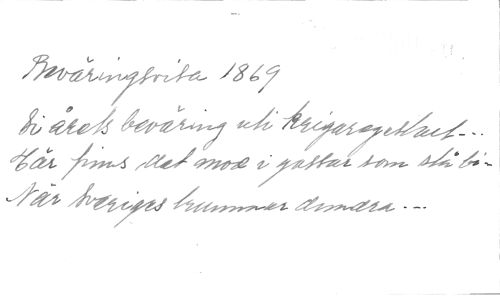 Beväringsvisa 1869
Vi årets beväring uti krigaregestalt...
Här fins det mod i gossar som stå bi-
När Sveriges trummor dundra...